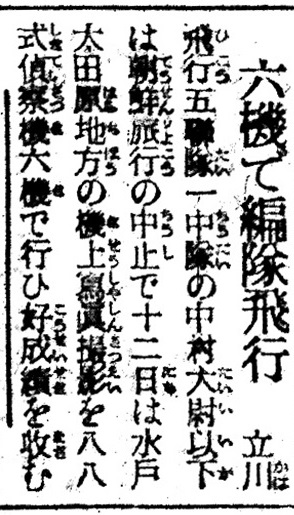 六機で編隊飛行
立川
飛行五聯隊一中隊の中村大尉以下
は朝鮮旅行の中止で十二日は水戸
太田原地方の機上寫眞撮影を八八
式偵察機六機で行ひ好成績を收む